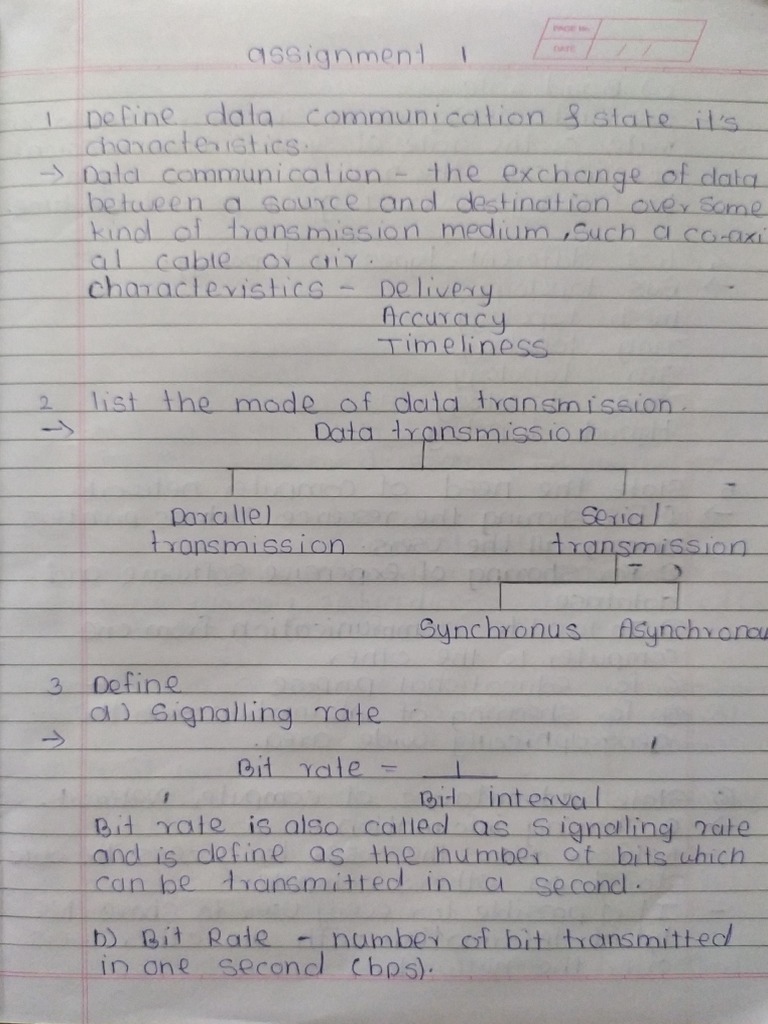 PAGE No.
DATE / /
assignment 1
1 Define data communication & state it's
characteristics.
→ Data communication - the exchange of data
between a source and destination over some
kind of transmission medium, such a co-axi
al cable or air.
characteristics - Delivery
Accuracy
Timeliness
2 list the mode of data transmission.
→ Data transmission
Parallel Serial
transmission transmission
Synchronus Asynchronou
3 Define
a) Signalling rate
→
Bit rate = 1
Bit interval
Bit rate is also called as signalling rate
and is define as the number of bits which
can be transmitted in a second.
b) Bit Rate - number of bit transmitted
in one second (bps).